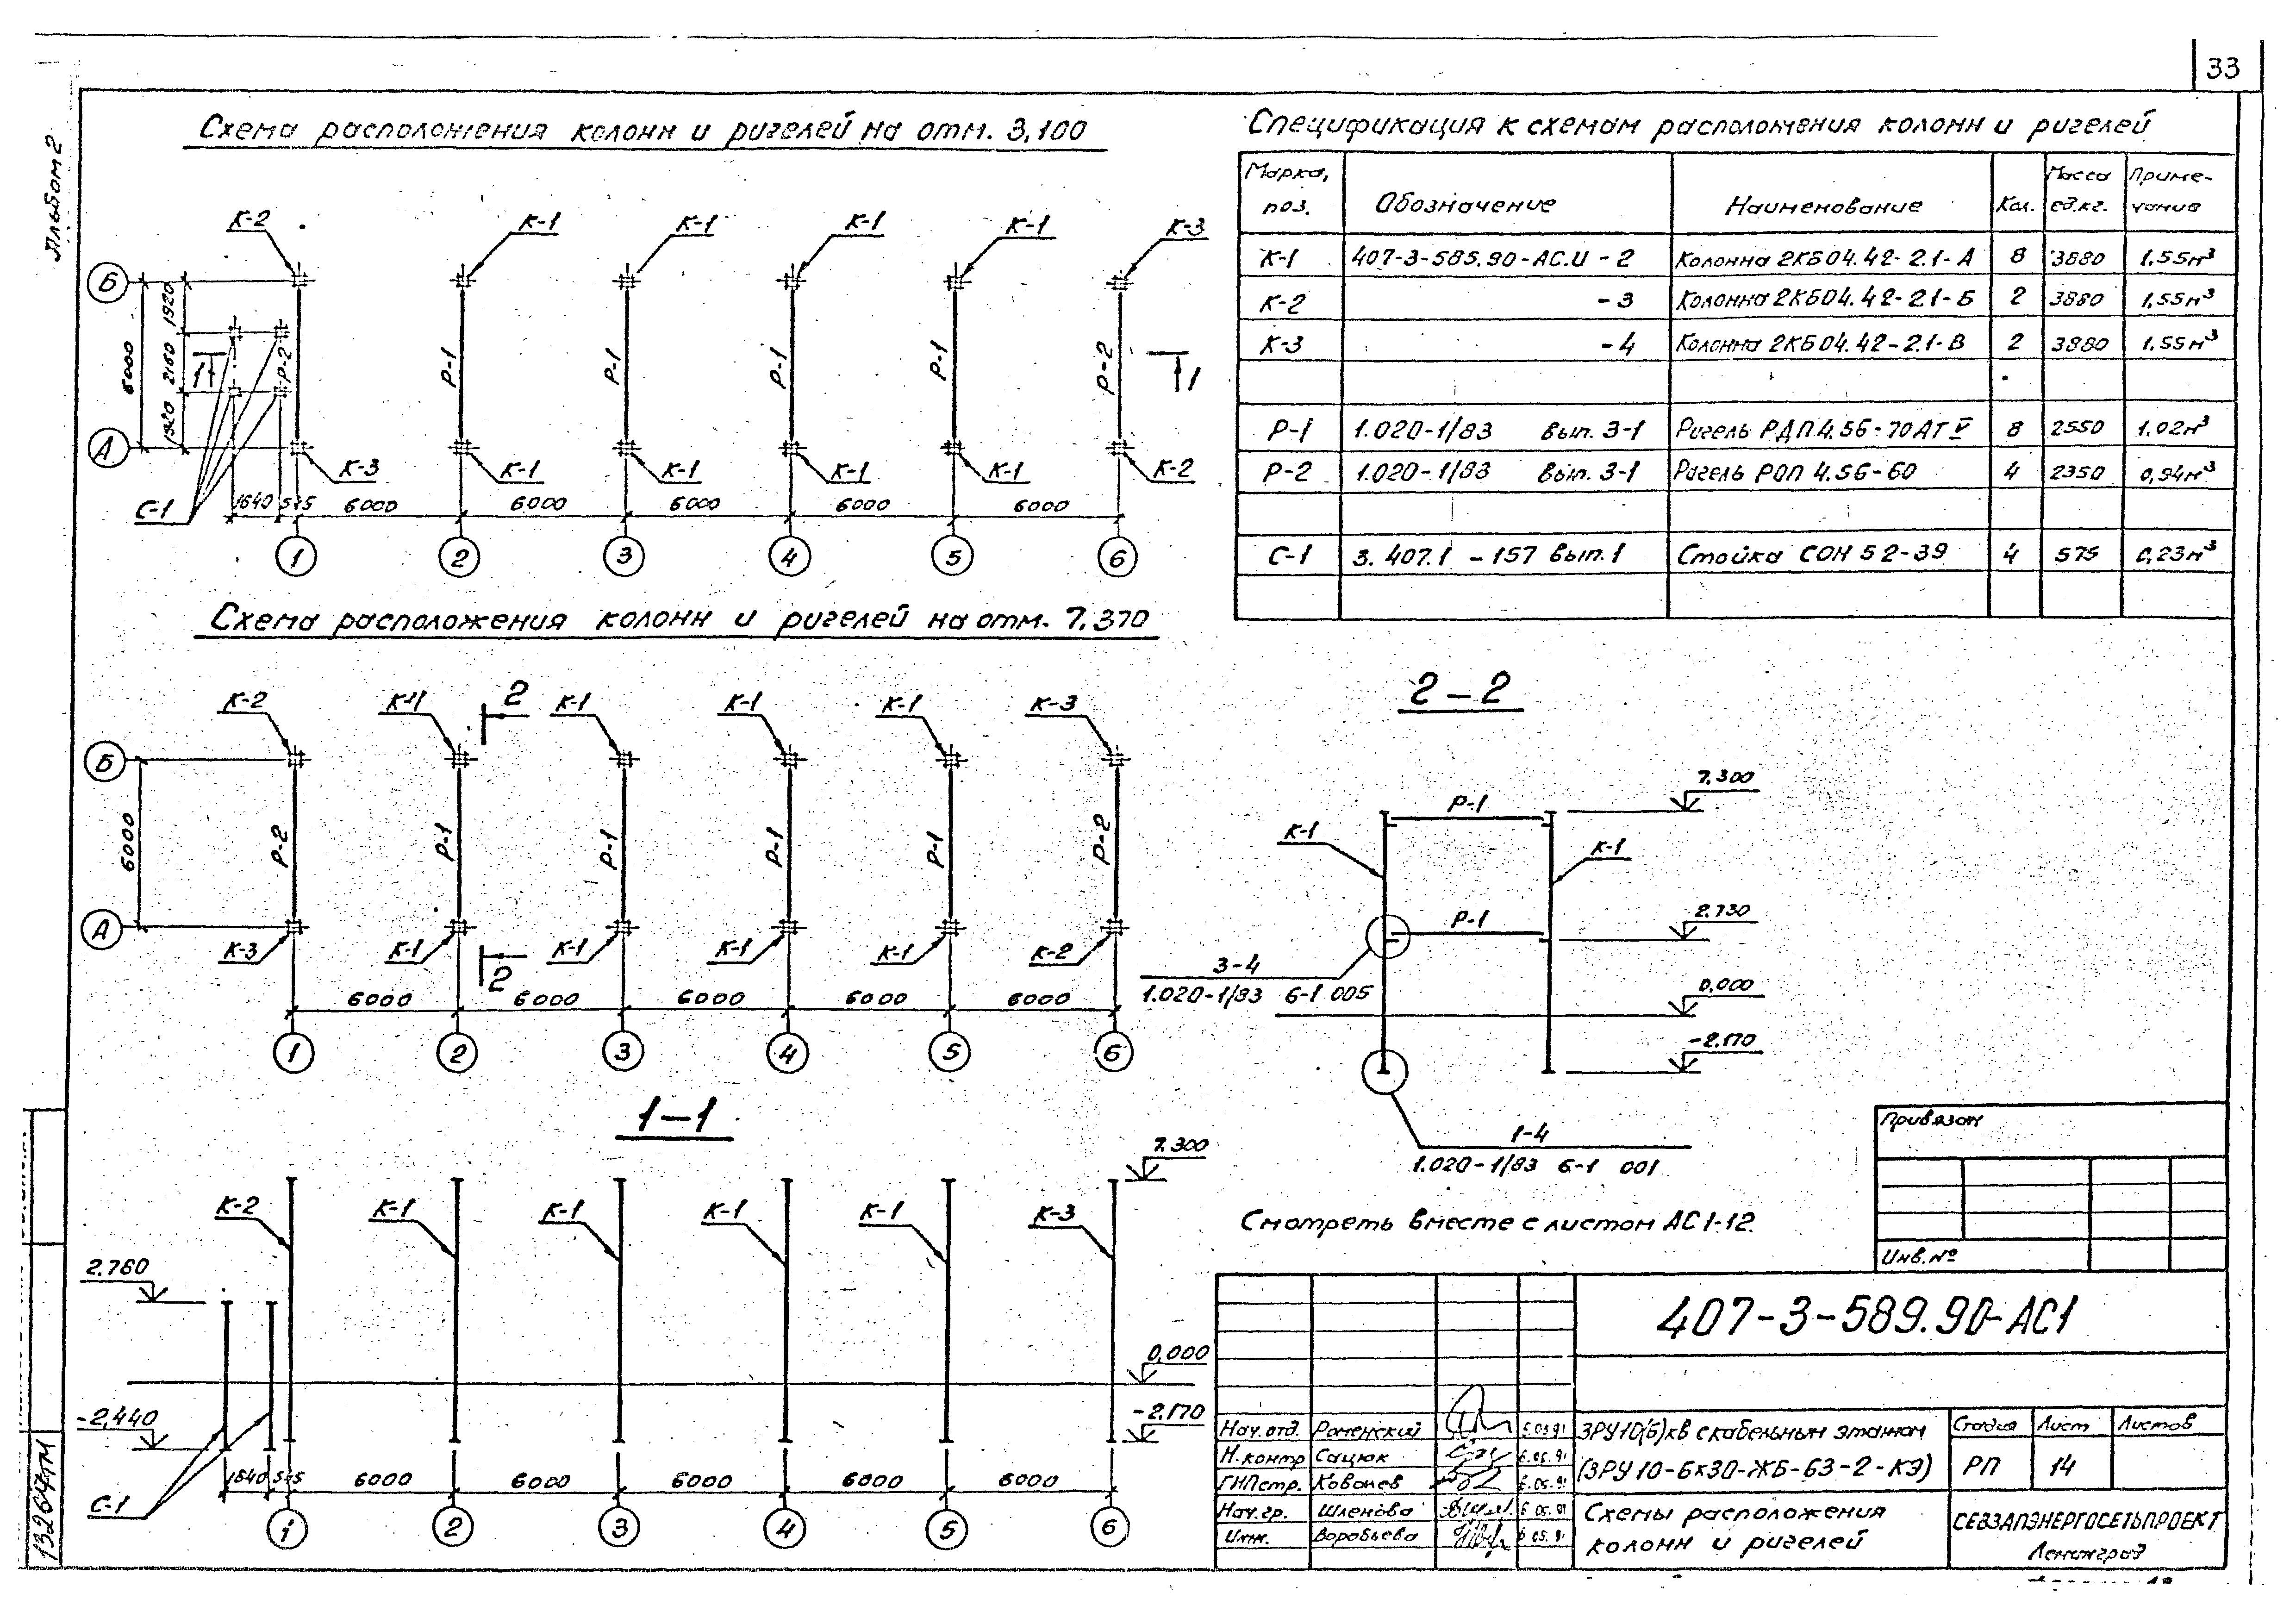 33
Альбом 2
Схема расположения колонн и ригелей на отм. 3,100
К-2 К-1 К-1 К-1 К-1 К-3
Б
1920
6000 2160 1 Р-2 Р-1 Р-1 Р-1 Р-1 Р-2 1
1920
А
К-3 К-1 К-1 К-1 К-1 К-2
С-1 1640 545 6000 6000 6000 6000 6000
1 2 3 4 5 6
Спецификация к схемам расположения колонн и ригелей
Марка, поз. Обозначение Наименование Кол. Масса ед.кг. Приме-чание
К-1 407-3-585.90-АС.И - 2 Колонна 2КБ04.42-2.1-А 8 3880 1.55м³
К-2 -3 Колонна 2КБ04.42-2.1-Б 2 3880 1.55м³
К-3 -4 Колонна 2КБ04.42-2.1-В 2 3880 1.55м³
Р-1 1.020-1/83 вып. 3-1 Ригель РДП4.56-70АТV 8 2550 1.02м³
Р-2 1.020-1/83 вып. 3-1 Ригель РОП 4.56-60 4 2350 0,94м³
С-1 3.407.1-157 вып.1 Стойка СОН 52-39 4 575 0,23м³
Схема расположения колонн и ригелей на отм. 7.370
К-2 К-1 2 К-1 К-1 К-1 К-3
Б
6000 Р-2 Р-1 Р-1 Р-1 Р-1 Р-2
А
К-3 К-1 2 К-1 К-1 К-1 К-2
6000 6000 6000 6000 6000
1 2 3 4 5 6
2-2
7.300
Р-1
К-1 К-1
2.730
Р-1
3-4
1.020-1/83 6-1 005
0,000
-2.170
1-4
1.020-1/83 6-1 001
1-1
7.300
К-2 К-1 К-1 К-1 К-1 К-3
2.760
0,000
-2,440 -2.170
С-1 1640 545 6000 6000 6000 6000 6000
1 2 3 4 5 6
Смотреть вместе с листом АС1-12.
Привязан
Инв.№
407-3-589.90-АС1
Нач.отд. Роменский 6.05.91
Н.контр Сацюк 6.05.91
ГИПстр. Ковалев 6.05.91
Нач.гр. Шленова 6.05.91
Инж. Воробьева 6.05.91
ЗРУ10(6)кВ с кабельным этажом
(ЗРУ10-6х30-ЖБ-63-2-КЭ)
Стадия Лист Листов
РП 14
Схемы расположения
колонн и ригелей
СЕВЗАПЭНЕРГОСЕТЬПРОЕКТ
Ленинград
13264тм